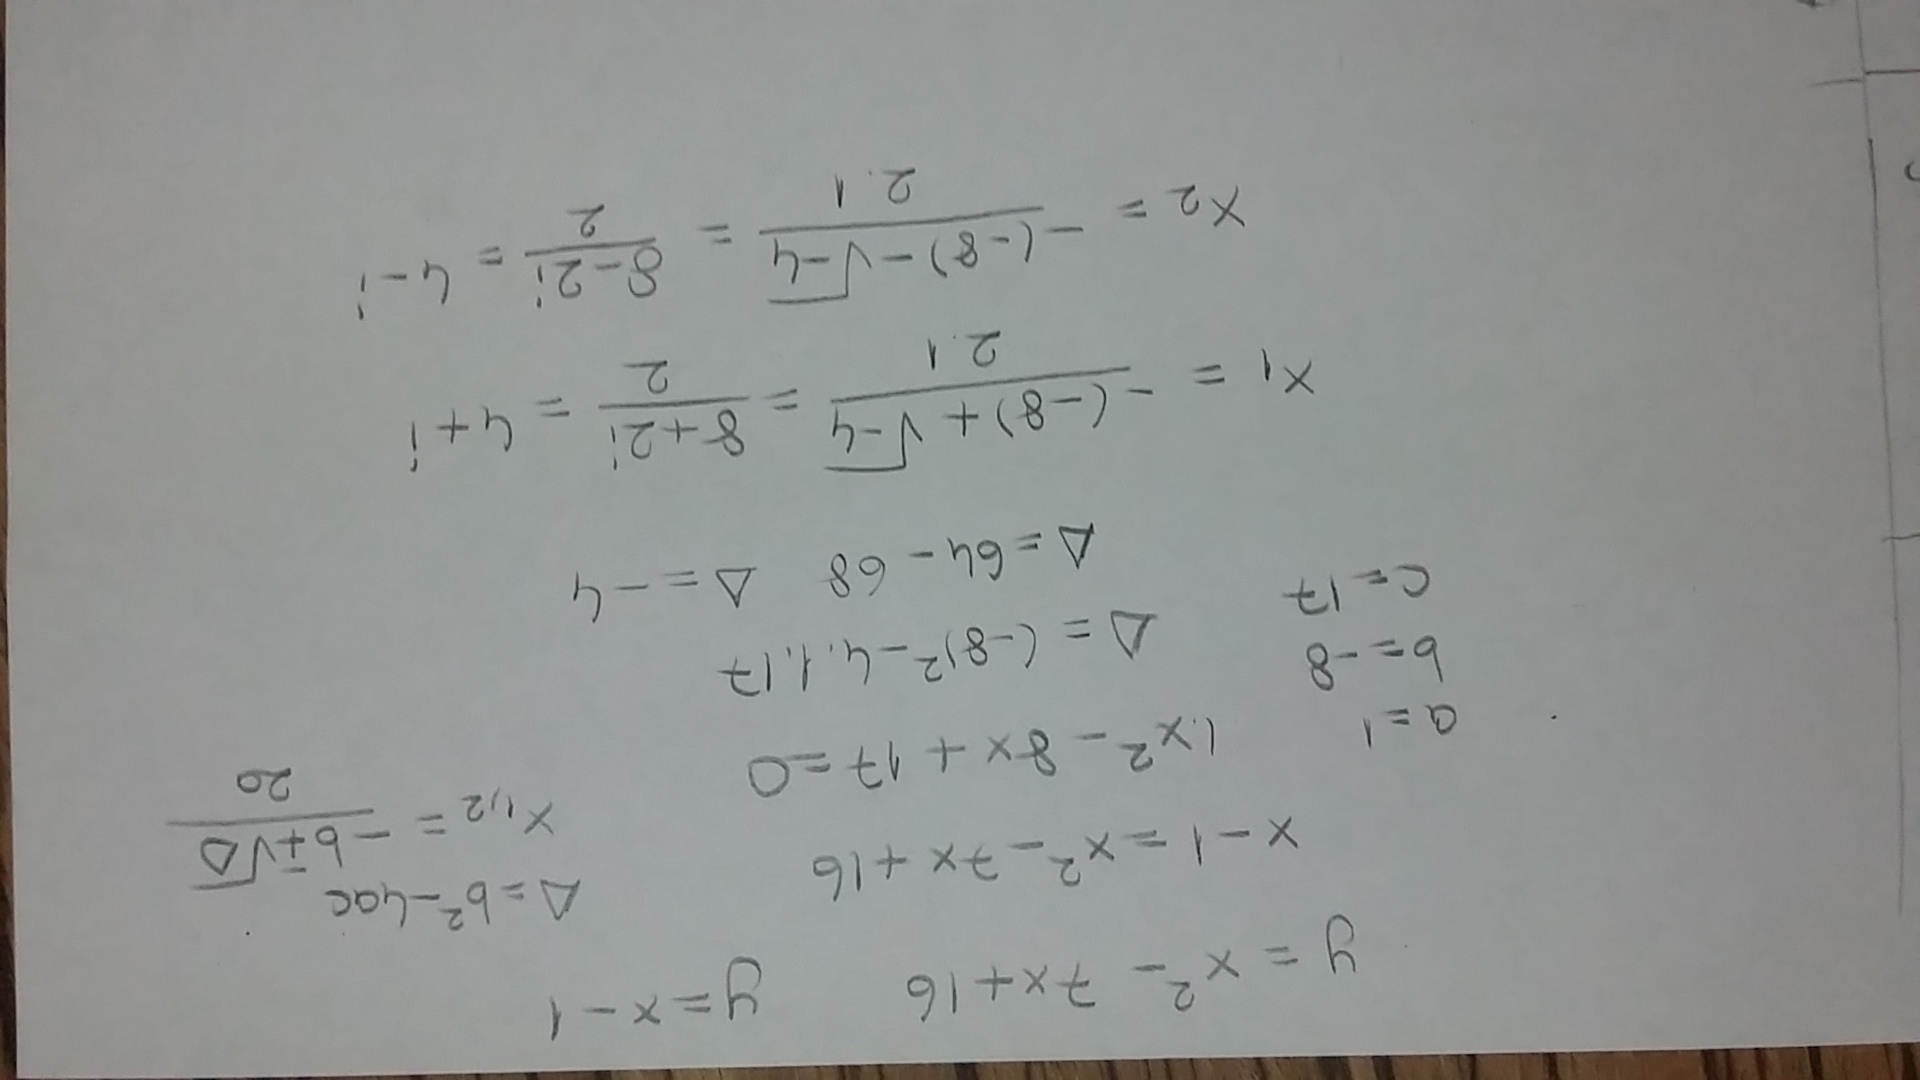 y = x² - 7x + 16 y = x - 1
x - 1 = x² - 7x + 16
Δ = b² - 4ac
x₁,₂ = (-b ∓ √Δ) / 2a
1.x² - 8x + 17 = 0
a = 1
b = -8
c = 17
Δ = (-8)² - 4.1.17
Δ = 64 - 68 Δ = -4
x₁ = (-(-8) + √-4) / 2.1 = (8 + 2i) / 2 = 4 + i
x₂ = (-(-8) - √-4) / 2.1 = (8 - 2i) / 2 = 4 - i